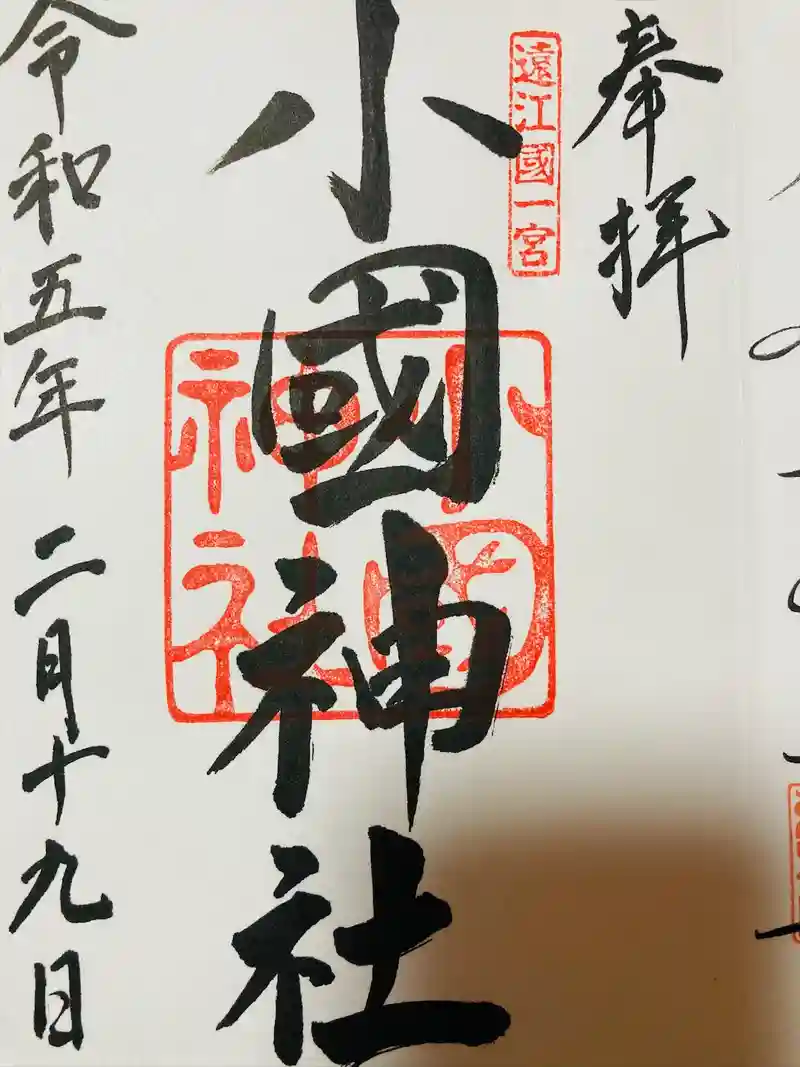 奉拝
遠江國一宮
小國神社
小國神社
令和五年二月十九日